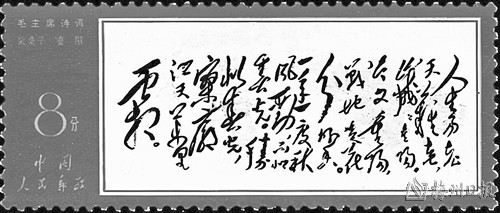 毛主席诗词
采桑子 重阳
8分
中国
人民邮政
人生易老
天难老
岁岁重阳。
今又重阳,
战地黄花
分外香。
一年一度秋
风劲,不似
春光。胜
似春光,
寥廓
江天万里
霜。
梅州日报